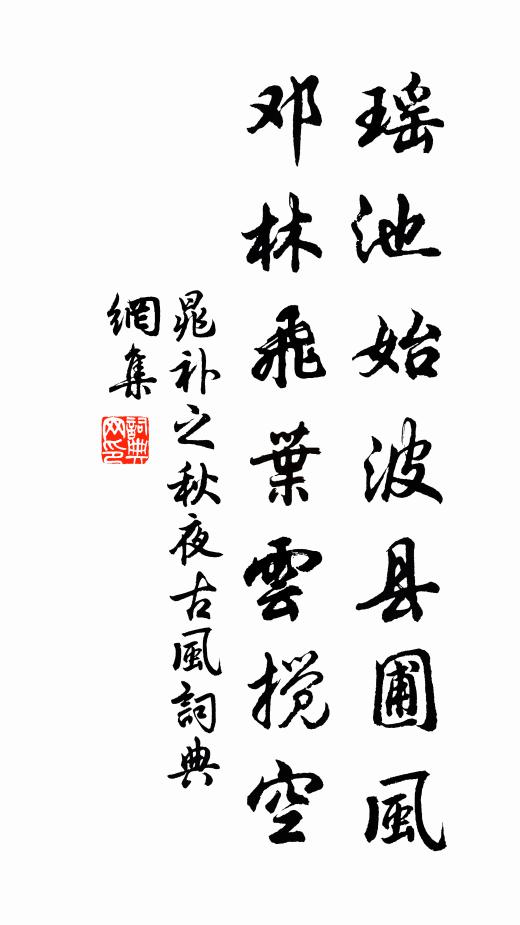 瑶池始波县圃風
邓林飛葉雲揽空
晁补之秋夜古風詞典
網集
詞典网印